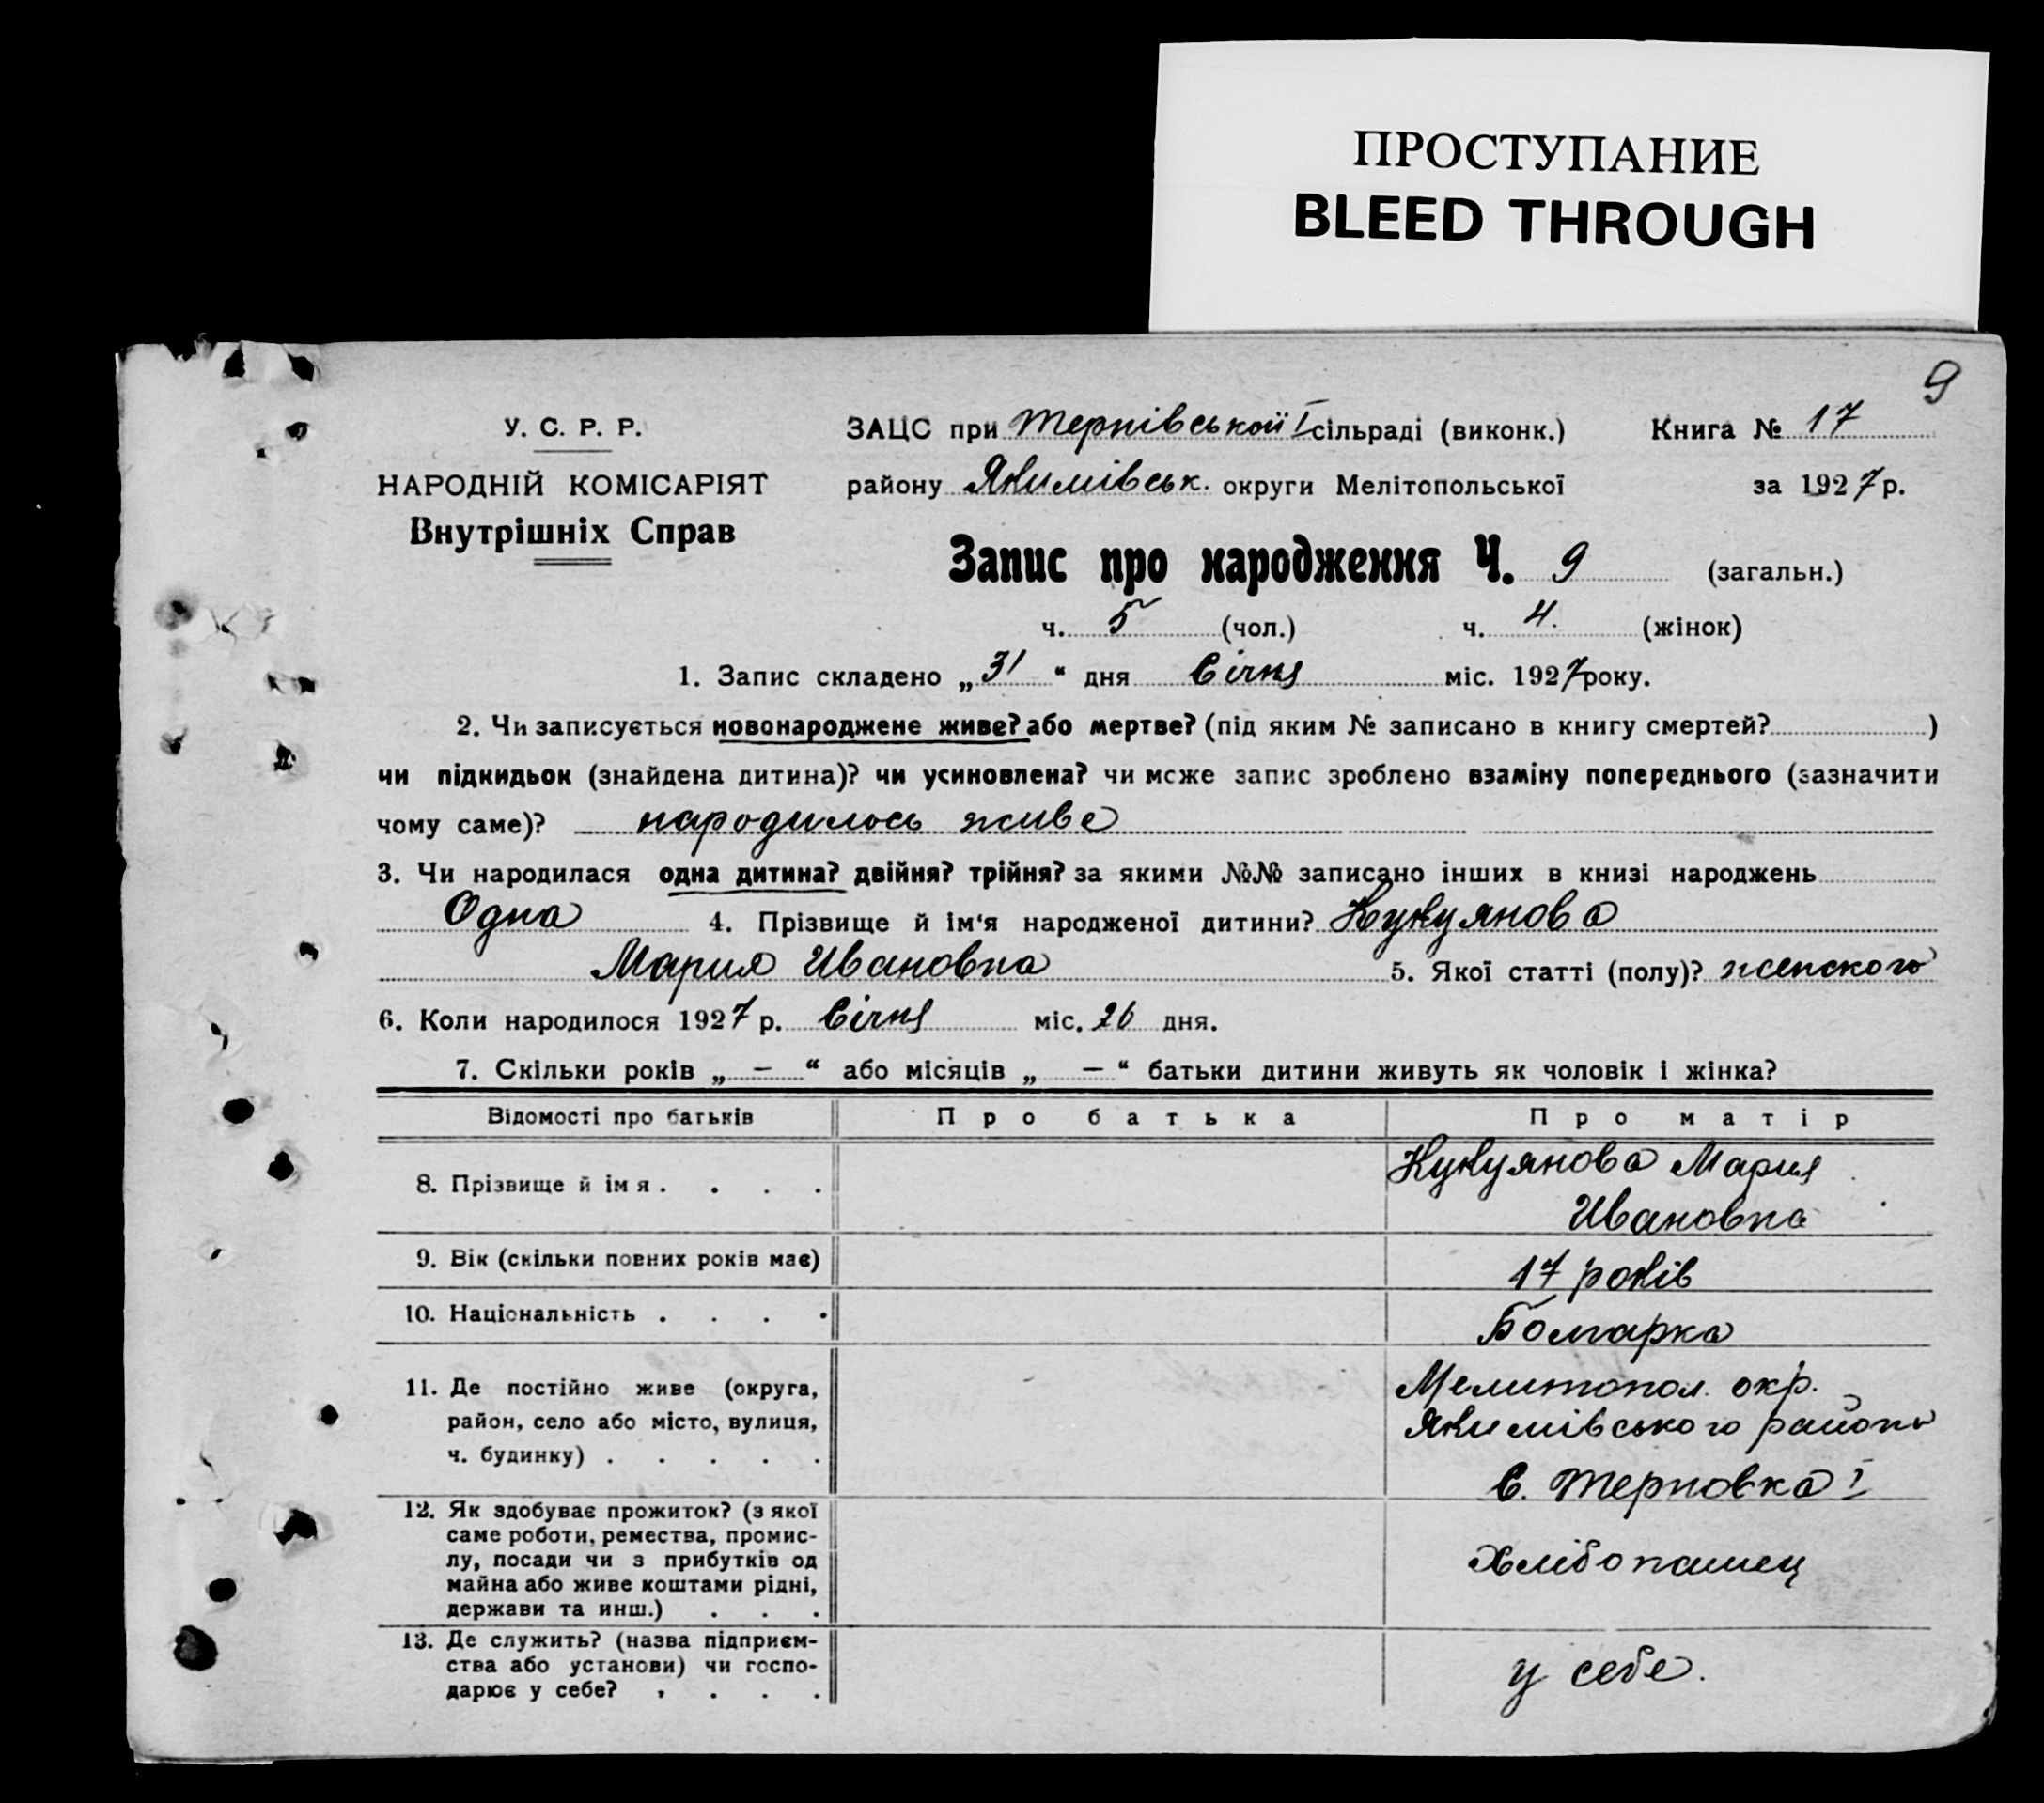 ПРОСТУПАНИЕ
BLEED THROUGH
9
У. С. Р. Р.
НАРОДНІЙ КОМІСАРІЯТ
Внутрішніх Справ
ЗАЦС при Тернівськой I сільраді (виконк.) Книга № 17
району Якимівськ. округи Мелітопольської за 1927 р.
Запис про народження Ч. 9 (загальн.)
ч. 5 (чол.) ч. 4. (жінок)
1. Запис складено „31“ дня Січня міс. 1927 року.
2. Чи записується новонароджене живе? або мертве? (під яким № записано в книгу смертей? )
чи підкидьок (знайдена дитина)? чи усиновлена? чи може запис зроблено взаміну попереднього (зазначити
чому саме)? народилось живе
3. Чи народилася одна дитина? двійня? трійня? за якими №№ записано інших в книзі народжень
Одна 4. Прізвище й ім‘я народженої дитини? Кукуянова
Мария Ивановна 5. Якої статті (полу)? женского
6. Коли народилося 1927 р. Січня міс. 26 дня.
7. Скільки років „ — “ або місяців „ — “ батьки дитини живуть як чоловік і жінка?
Відомості про батьків Про батька Про матір
8. Прізвище й імя . . . . Кукуянова Мария
Ивановна
9. Вік (скільки повних років має) 17 років
10. Національність . . . . Болгарка
11. Де постійно живе (округа, Мелитопол. окр.
район, село або місто, вулиця, Якимівського района
ч. будинку) . . . . . С. Терновка I
12. Як здобуває прожиток? (з якої
саме роботи, ремества, промис-
лу, посади чи з прибутків од Хлібопашец
майна або живе коштами рідні,
держави та инш.) . . .
13. Де служить? (назва підприєм-
ства або установи) чи госпо- у себе.
дарює у себе? . . . .